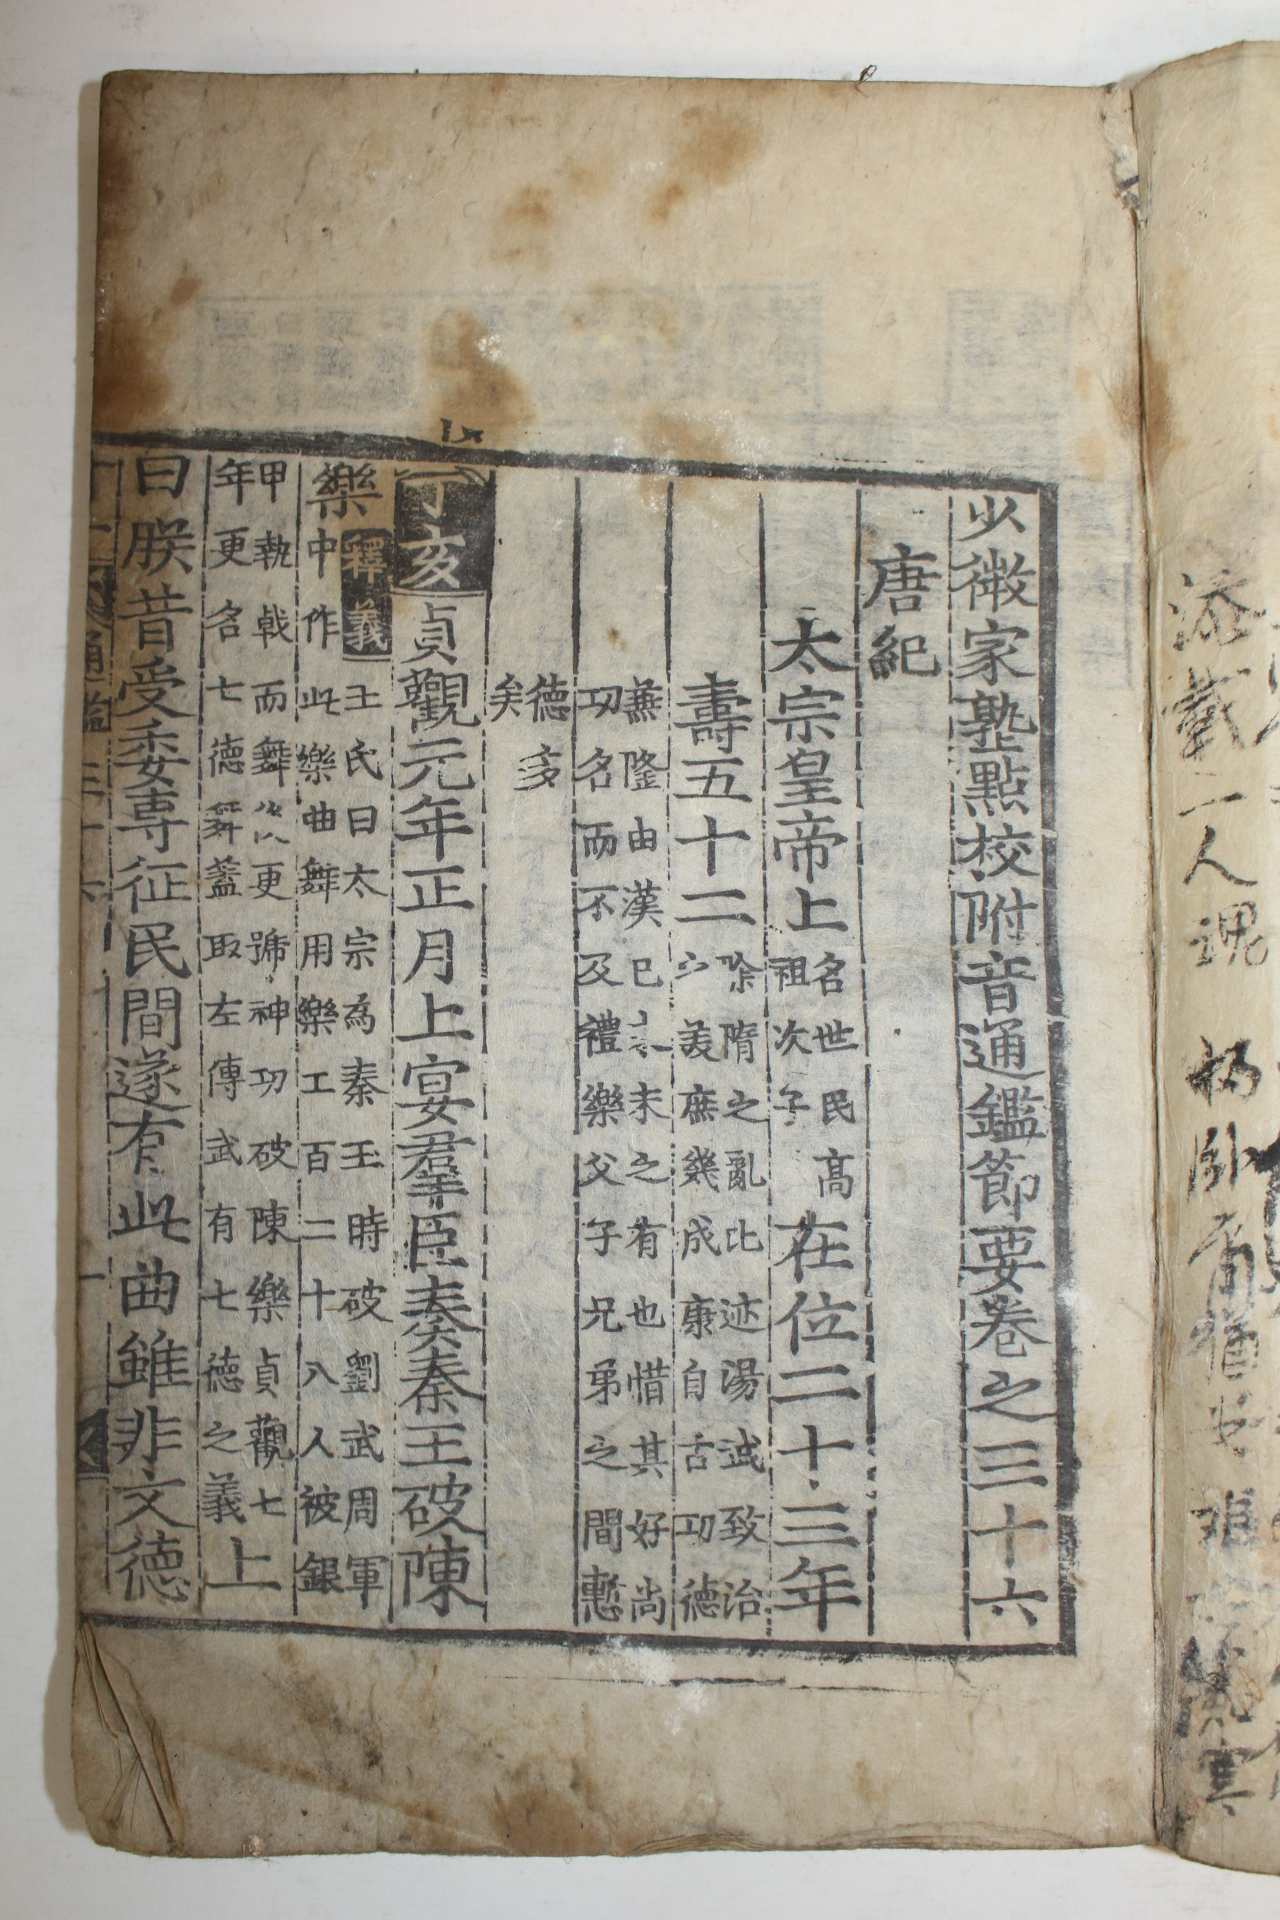 少微家塾點校附音通鑑節要卷之三十六
唐紀
太宗皇帝上
名世民高
祖次子
在位二十三年
壽五十二
除隋之亂比迹湯武致治
之美庶幾成康自古功德
兼隆由漢已來未之有也惜其好尚
功名而不及禮樂父子兄弟之間慙
德多
矣
丁亥貞觀元年正月上宴羣臣奏秦王破陳
樂
釋義王氏曰太宗為秦王時破劉武周軍
中作此樂曲舞用樂工百二十八人被銀
甲執戟而舞後更號神功破陳樂貞觀七
年更名七德舞蓋取左傳武有七德之義
上
曰朕昔受委專征民間遂有此曲雖非文德
通鑑三十六
一
一人